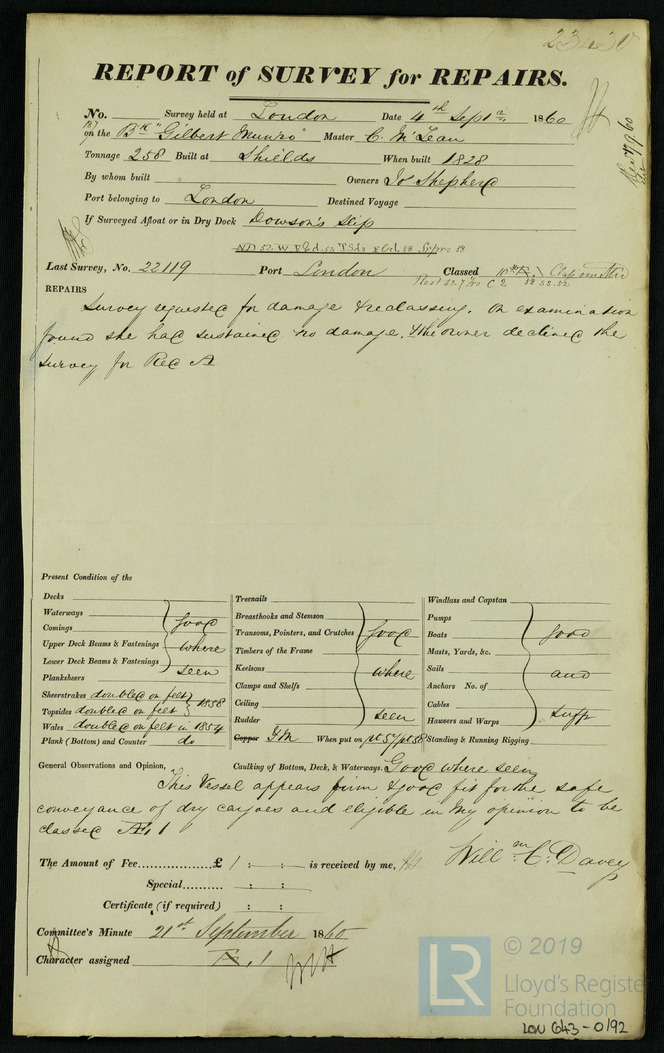 REPORT of SURVEY for REPAIRS.
No. Survey held at London Date 4th Sepr 1860
on the Bk "Gilbert Munro" Master C. McLean
Tonnage 258 Built at Shields When built 1828
By whom built Owners Js Shepherd
Port belonging to London Destined Voyage
If Surveyed Afloat or in Dry Dock Dowson's Slip
Last Survey, No. 22119 Port London Classed
REPAIRS
Survey requested for damage & reclassing. On examination
found she had sustained no damage, & the owner declined the
survey for Red A
Present Condition of the
Decks
Waterways
Comings
Upper Deck Beams & Fastenings
Lower Deck Beams & Fastenings
Plansheers
good where seen
Sheerstrakes doubled on felt
Topsides doubled on felt 1858
Wales doubled on felt in 1854
Plank (Bottom) and Counter do
Treenails
Breasthooks and Stemson
Transoms, Pointers, and Crutches
Timbers of the Frame
Keelsons
Clamps and Shelfs
Ceiling
Rudder
good where seen
Copper Y.M When put on pt 57 pt 58
Windlass and Capstan
Pumps
Boats
Masts, Yards, &c.
Sails
Anchors No. of
Cables
Hawsers and Warps
good and suffr
Standing & Running Rigging
General Observations and Opinion, Caulking of Bottom, Deck, & Waterways. Good where seen
This Vessel appears firm & good fit for the safe
conveyance of dry cargoes and eligible in my opinion to be
classed Æ 1
The Amount of Fee £ 1 : : is received by me, Willm C. Davey
Special : :
Certificate (if required) : :
Committee's Minute 21st September 1860
Character assigned Æ 1
LR © 2019
Lloyd's Register
Foundation
LON 643-0192